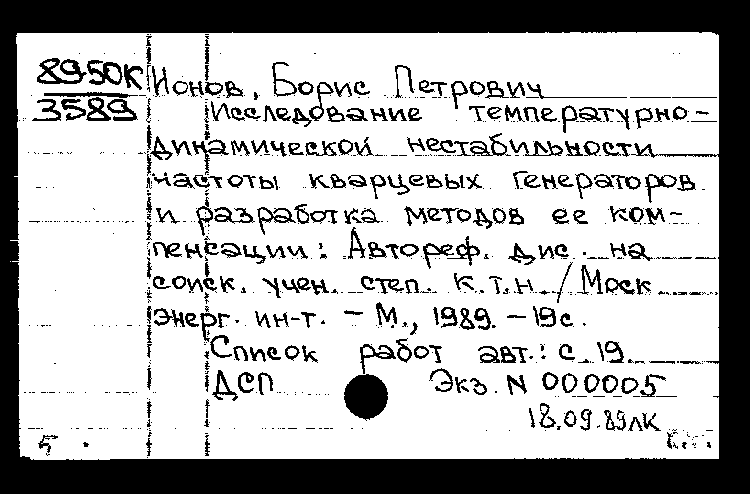 8950К
3589
Ионов, Борис Петрович
Исследование температурно-
динамической нестабильности
частоты кварцевых генераторов
и разработка методов ее ком-
пенсации: Автореф. дис. на
соиск. учен. степ. к.т.н. / Моск
энерг. ин-т. - М., 1989. - 19с.
Список работ авт.: с. 19.
ДСП Экз. N 000005
18.09.89ЛК
5